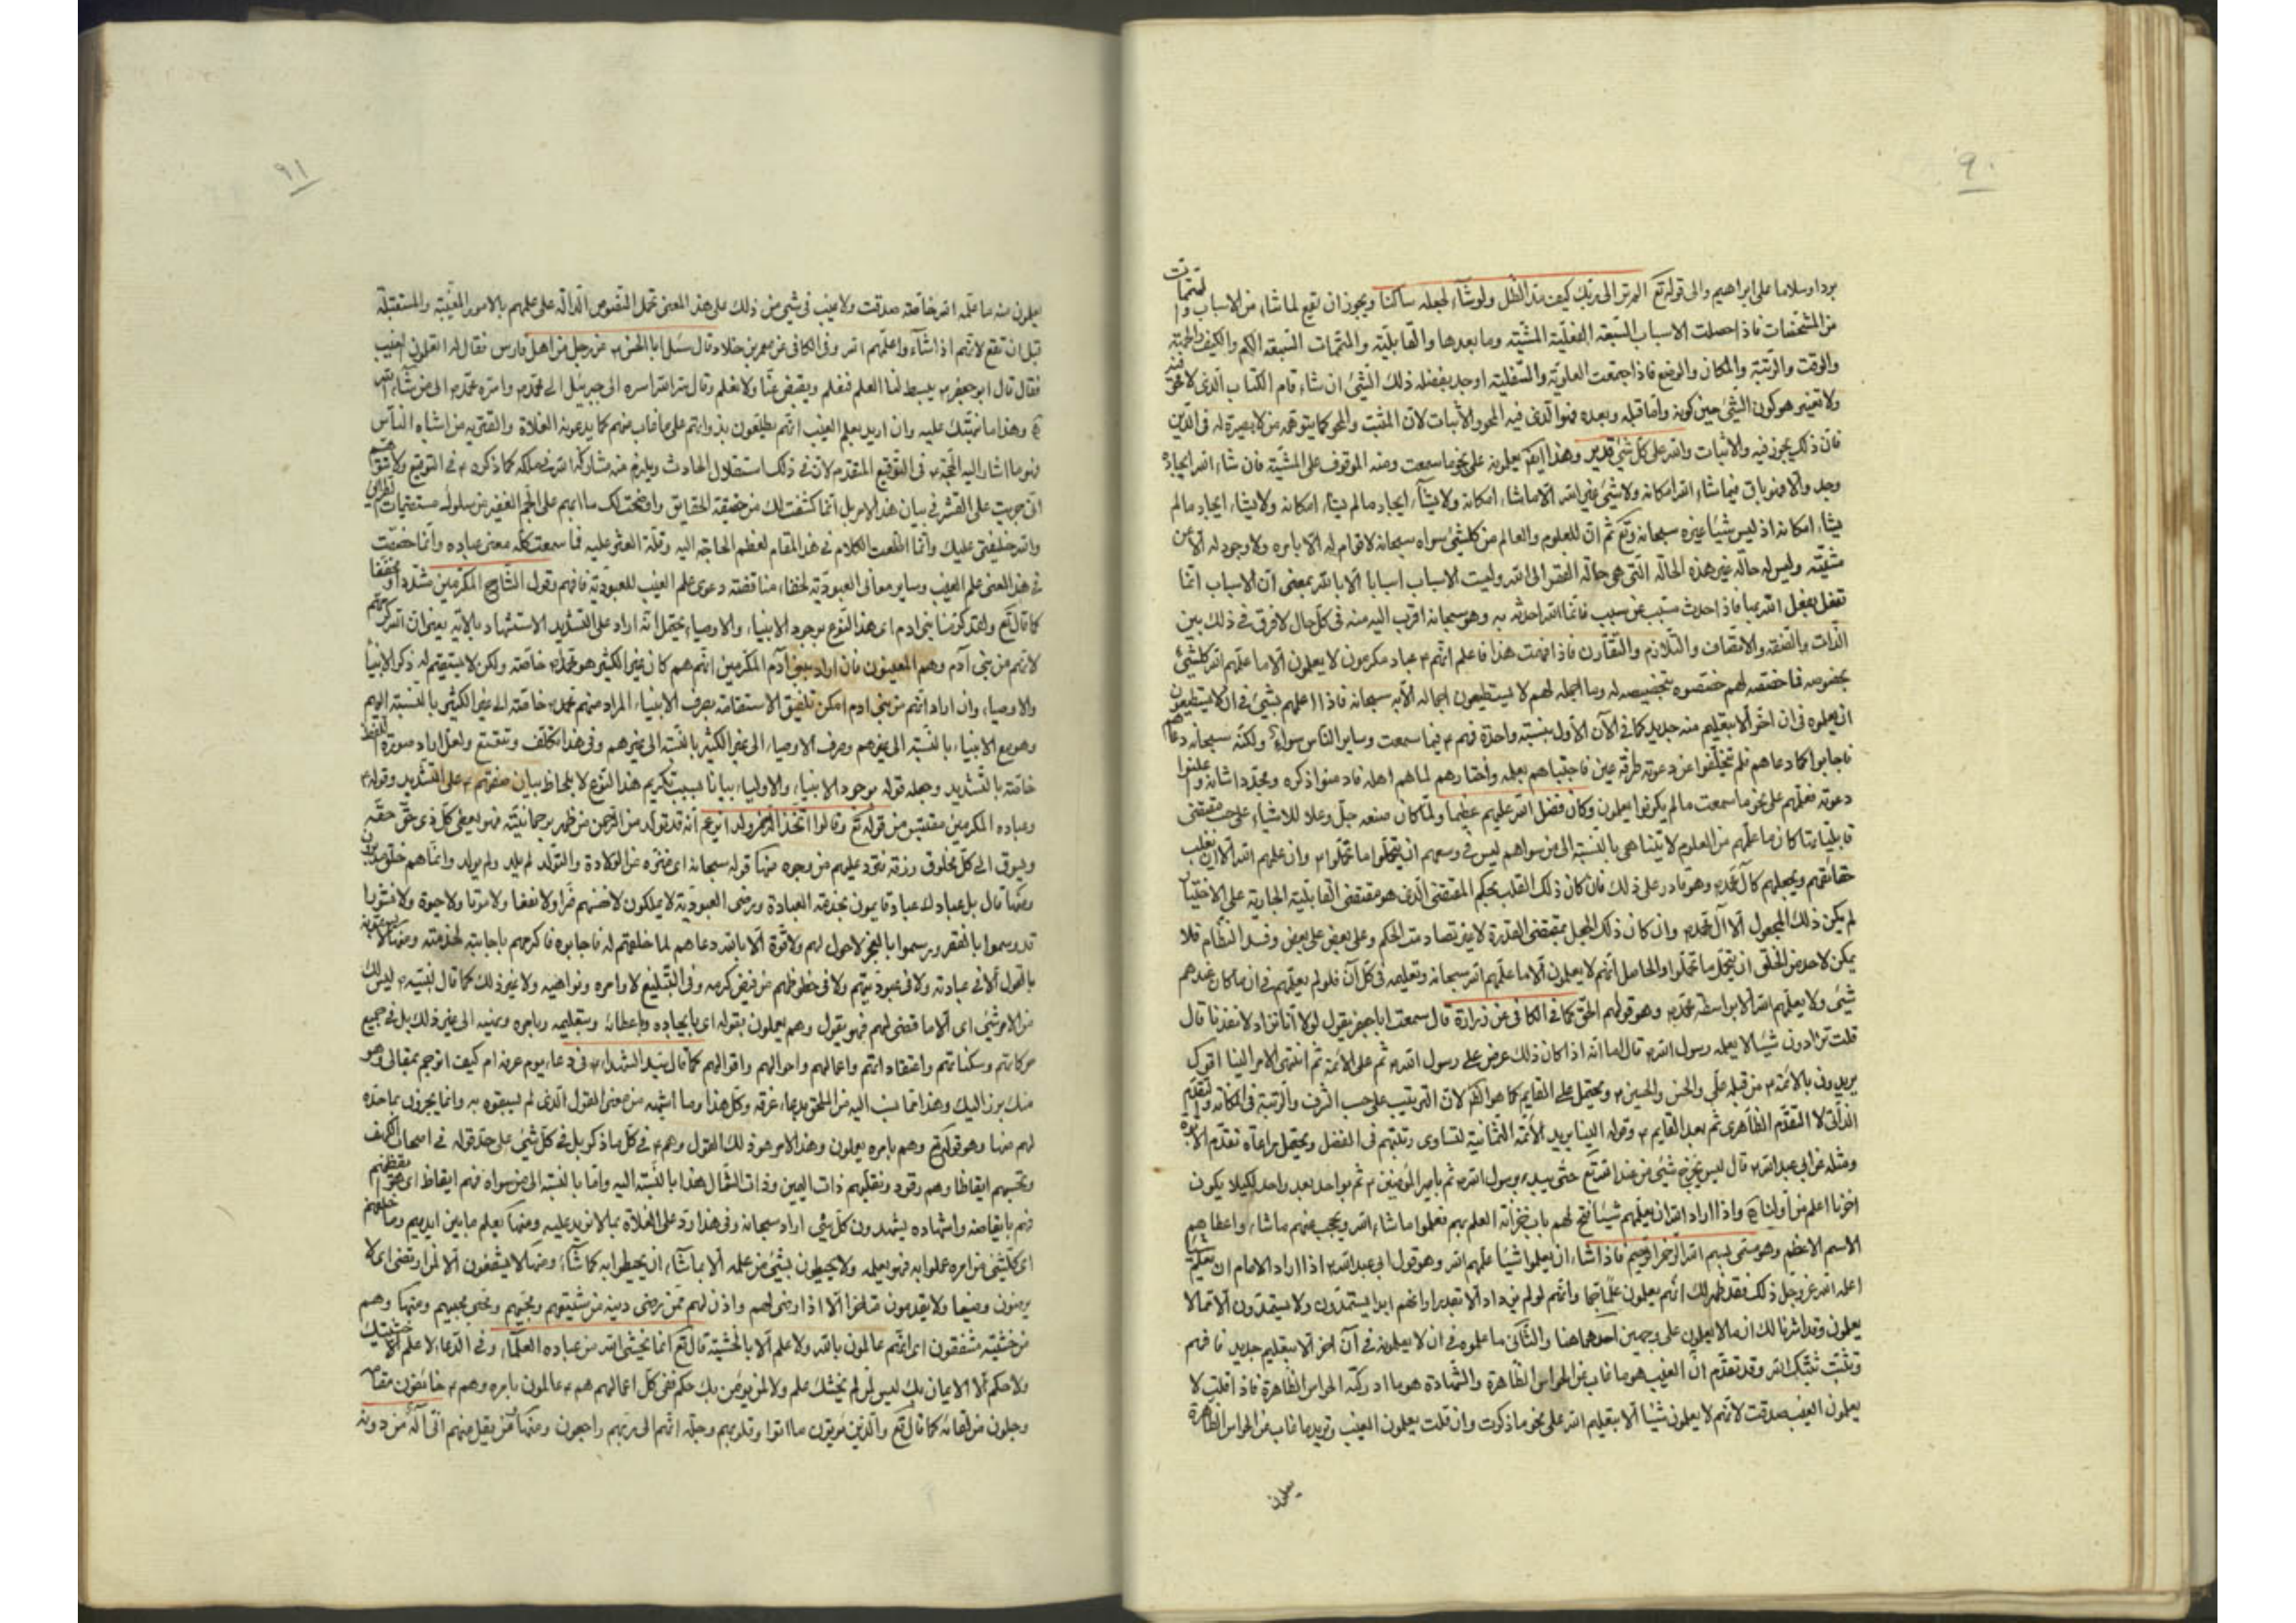 ٩٠
بردا وسلاما على ابراهيم والى قوله تع الم تر الى ربك كيف مد الظل ولو شاء لجعله ساكنا ويجوز ان تقع لما شاء من الاسباب والمتممات
من المشخصات فاذا حصلت الاسباب السبعة الفعلية المشية وما بعدها والقابلية والمتممات السبعة الكم والكيف والجهة
والوقت والرتبة والمكان والوضع فاذا اجتمعت العلوية والسفلية اوجد بفضله ذلك الشئ ان شاء قام الكتاب الذى لا محو فيه
ولا تغيير هو كون الشئ حين كونه واما قبله وبعده فهو الذى فيه المحو والاثبات لان المثبت والمحو كما يتوهمه من لا بصيرة له فى الدين
فان ذلك يجوز فيه والاثبات والله على كل شئ قدير وهذا ايضا يعلمونه على نحو ما سمعت ومنه الموقوف على المشية فان شاء الله ايجاده
وجد والا فهو باق فيما شاء الله امكانه ولا شئ غير الله الا ما شاء امكانه ولا يشاء ايجاد ما لم يشاء امكانه ولا يشاء ايجاد ما لم
يشاء امكانه اذ ليس شيئا غيره سبحانه وتع ثم ان للعلوم والعالم من كلشئ سواه سبحانه لا قوام له الا بامره ولا وجود له الا عن
مشيته وليس له حالة غير هذه الحالة التى هى حالة الفقر الى الله وليت الاسباب اسبابا الا بالله بمعنى ان الاسباب انما
تفعل بفعل الله بها فاذا احدث مسبب عن سبب فانما الله احدثه به وهو سبحانه اقرب اليه منه فى كل حال لا فرق فى ذلك بين
الذات والصفة والاتصاف والتلازم والتقارن فاذا فهمت هذا فاعلم انهم ع عباد مكرمون لا يعلمون الا ما علمهم الله كلشئ
بخصوصه فما خصصه لهم خصصوه بتخصيصه له وما اجمله لهم لا يستطيعون اجماله الا به سبحانه فاذا اعلمهم بشئ فى ان لا يستطيعون
ان يعلموه فى ان اخر الا بتعليم منه جديد كما فى الآن الاول بنسبة واحدة فهم ع فيما سمعت وساير الناس سواء ولكنه سبحانه دعاهم
فاجابوا كما دعاهم فلم يتخلفوا عن دعوته طرفة عين فاجتباهم بعلمه واختارهم لما هم اهله فادمنوا ذكره ومجدوا شانه وأعلنوا
دعوته فعلمهم على نحو ما سمعت ما لم يكونوا يعلمون وكان فضل الله عليهم عظيما ولما كان صنعه جل وعلا للاشياء على حسب مقتضى
قابلياتها كان ما علمهم من العلوم لا يتناهى بالنسبة الى من سواهم ليس فى وسعهم ان يتحملوا ما تحملوا ع وان علمهم الله الا ان يقلب
حقائقهم ويجعلهم كآل محمد ص وهو قادر على ذلك فان كان ذلك القلب بحكم المقتضى الذى هو مقتضى القابلية الجارية على الاختيار
لم يكن ذلك المجعول الا آل محمد ص وان كان ذلك الجعل بمقتضى القدرة لا غير تصادمت الحكم وعلى بعض على بعض وفسد النظام فلا
يمكن لاحد من الخلق ان يتحمل ما تحملوا والحاصل انهم لا يعلمون الا ما علمهم الله سبحانه وتعليمه فى كل آن فلو لم يعلمهم فى ان ما كان عندهم
شئ ولا يعلمهم الله الا بواسطة محمد ص وهو قولهم الحق كما فى الكافى عن زرارة قال سمعت ابا جعفر يقول لولا انا نزداد لانفدنا قال
قلت تزدادون شيئا لا يعلمه رسول الله ص قال اما انه اذا كان ذلك عرض على رسول الله ص ثم على الائمة ثم انتهى الامر الينا اقول
يريدون بالائمة ع من قبله على والحسن والحسين ع ويحتمل على القايم كما هو الاكثر لان الترتيب على حسب الشرف والرتبة فى المكانة والتقدم
الذاتى لا التقدم الظاهرى ثم بعد القايم ع وقوله الينا يريد الائمة الثمانية لتساوى رتبتهم فى الفضل ويحتمل مراعاة تقدم الابوة
ومثله عن ابى عبدالله ع قال ليس يخرج شئ من عند الله تع حتى يبدء برسول الله ص ثم بامير المؤمنين ع ثم بواحد بعد واحد لكيلا يكون
اخرنا اعلم من اولنا واذا اراد الله ان يعلمهم شيئا فتح لهم باب خزانة العلم بهم فعلموا ما شاء الله ويحجب عنهم ما شاء واعطاهم
الاسم الاعظم وهو مسمى بسم الله الرحمن الرحيم فاذا شاء ان يعلموا شيئا علمهم الله وهو قول ابى عبدالله ع اذا اراد الامام ان يعلم شيئا
اعلمه الله عز وجل ذلك فقد ظهر لك انهم يعلمون علما جما وانهم لو لم يزدادوا لانفد ما عندهم انما يستمدون ولا يستمدون الا مما لا
يعلمون وقد اشرنا لك ان ما لا يعلمون على وجهين احدهما هنا والثانى ما علموه فى ان لا يعلمونه فى آن اخر الا بتعليم جديد فافهم
وتثبت ثبتك الله وقد تقدم ان الغيب هو ما غاب عن الحواس الظاهرة والشهادة هو ما ادركته الحواس الظاهرة فاذا قلت لا
يعلمون الغيب صدقت لانهم لا يعلمون شيئا الا بتعليم الله على نحو ما ذكرت وان قلت يعلمون الغيب وتريد ما غاب عن الحواس الظاهرة
يعلمون
٩١
يعلمون منه ما علمه الله خاصة صدقت ولا عيب فى شئ من ذلك على هذا المعنى تحمل النصوص الدالة على علمهم بالامور المغيبة والمستقبلة
قبل ان تقع لانهم اذا شاؤا واعلمهم الله وفى الكافى عن معمر بن خلاد قال سئل ابا الحسن ع عن رجل من اهل فارس فقال له اتعلمون الغيب
فقال قال ابو جعفر ع يبسط لنا العلم فنعلم ويقبض عنا ولا نعلم وقال سر الله اسره الى جبرئيل الى محمد ص واسره محمد ص الى من شاء الله
وهذا ما نبهتك عليه وان اريد بعلم الغيب انهم يطلعون بذواتهم على ما غاب عنهم كما يدعونه الغلاة والمفترين من اشباه الناس
فهو ما اشار اليه الحجة ع فى التوقيع المتقدم لان فى ذلك استقلال الحادث ويلزم منه مشاركة الله فى ملكه كما ذكره ع فى التوقيع ولا تتوهم
انى جريت على القشر فى بيان هذا الامر بل انما كشفت لك من حقيقة الحقايق واوضحت لك ما ابهم على الجم الغفير من سلوك مستصعبات الطرائق
والله خليفتى عليك وانما اطلت الكلام فى هذا المقام لعظم الحاجة اليه وقلة العثر عليه فما سمعت كله معنى عباده وانما خصصت
فى هذا المعنى علم الغيب وساير معانى العبودية لخفاء مناقضة دعوى علم الغيب للعبودية فافهم وقول الشارح المكرمين مشددا او مخففا
كما قال تع ولقد كرمنا بنى ادم اى هذا النوع بوجود الانبياء والاوصياء يحتمل انه اراد على التشديد الاستشهاد بالاية يعنى ان الله كرمهم
لانهم من بنى آدم وهم المعنيون فان اراد ببنى آدم المكرمين انهم هم كان غير الكثير هو محمد ص خاصة ولكن لا يستقيم له ذكر الانبياء
والاوصياء وان اراد انهم من بنى ادم امكن تلفيق الاستقامة بصرف الانبياء المراد منهم محمد ص خاصة الى غير الكثير بالنسبة اليهم
وهو مع الانبياء بالنسبة الى غيرهم وصرف الاوصياء الى غير الكثير بالنسبة الى غيرهم وفى هذا تكلف وتعسف ولعل اراد صورة اللفظ
خاصة بالتشديد وجعله قوله بوجود الانبياء والاولياء بيانا لسبب تكريم هذا النوع لا بلحاظ بيان صفتهم ع على التشديد وقوله ع
وعباده المكرمين مقتبس من قوله تع وقالوا اتخذ الرحمن ولدا اى زعم انه قد تولد من الرحمن من ظهر برحمانيته فهو يعطى كل ذى حق حقه
ويسوق الى كل مخلوق رزقه فرد عليهم من وجوه منها قوله سبحانه اى منزه عن الولادة والتولد لم يلد ولم يولد وانما هم خلق مدبرون
ومنها قال بل عباد له عباد قايمون بخدمة العبادة ورضى العبودية لا يملكون لانفسهم ضرا ولا نفعا ولا موتا ولا حيوة ولا نشورا
قد وسموا بالفقر ورسموا بالعجز لا حول لهم ولا قوة الا بالله دعاهم لما خلقهم له فاجابوه فاكرمهم باجابته لخدمته ومنها لا يسبقونه
بالقول الا فى عبادته ولا فى عبوديتهم ولا فى حظوظهم من فيض كرمه وفى التبليغ لاوامره ونواهيه ولا غير ذلك كما قال لنبيه ص ليس لك
من الامر شئ اى الا ما قضى لهم فهو يقول وهم يعملون بقوله اى بايجاده واعطائه وبتعليمه وبامره ونهيه الى غير ذلك بل فى جميع
حركاتهم وسكناتهم واعتقاداتهم واعمالهم واحوالهم واقوالهم كما قال سيد الشهداء ع فى دعاء يوم عرفه ام كيف اترجم بمقالى وهو
منك برز اليك وهذا انما نسب اليه من الملحق بدعاء عرفه وكل هذا وما اشبه من معنى القول الذى لم يسبقوه به وانما يجرون بما حده
لهم منها وهو قوله تع وهم بامره يعملون وهذا الامر هو ذلك القول وهم ع فى كل ما ذكر بل فى كل شئ على حد قوله فى اصحاب الكهف
وتحسبهم ايقاظا وهم رقود ونقلبهم ذات اليمين وذات الشمال هذا بالنسبة اليه واما بالنسبة الى من سواه فهم ايقاظ اى هو ايقظهم
فهم بايقاظه واشهاده يشهدون كل شئ اراد سبحانه وفى هذا رد على الغلاة بما لا مزيد عليه ومنها يعلم ما بين ايديهم وما خلفهم
اى كلشئ من امره عملوا به فهو يعلمه ولا يحيطون بشئ من علمه الا بما شاء ان يحيطوا به كما شاء ومنها لا يشفعون الا لمن ارتضى اى لا
يرضون وضيعا ولا يقدمون متاخرا الا اذا رضى لهم واذن لهم ممن رضى دينه من شيعتهم ومحبيهم ومحبى محبيهم ومنها وهم
من خشيته مشفقون اى انهم عالمون بالله ولا علم الا بالخشية قال تع انما يخشى الله من عباده العلماء وفى الدعاء لا علم الا خشيتك
ولا حكم الا الايمان بك ليس لمن لم يخشك علم ولا لمن لم يؤمن بك حكم ففى كل اعمالهم هم ع عالمون بامره وهم ع خائفون مقامه
وجلون من لقائه كما قال تع والذين يؤتون ما اتوا وقلوبهم وجلة انهم الى ربهم راجعون ومنها من يقل منهم انى اله من دونه